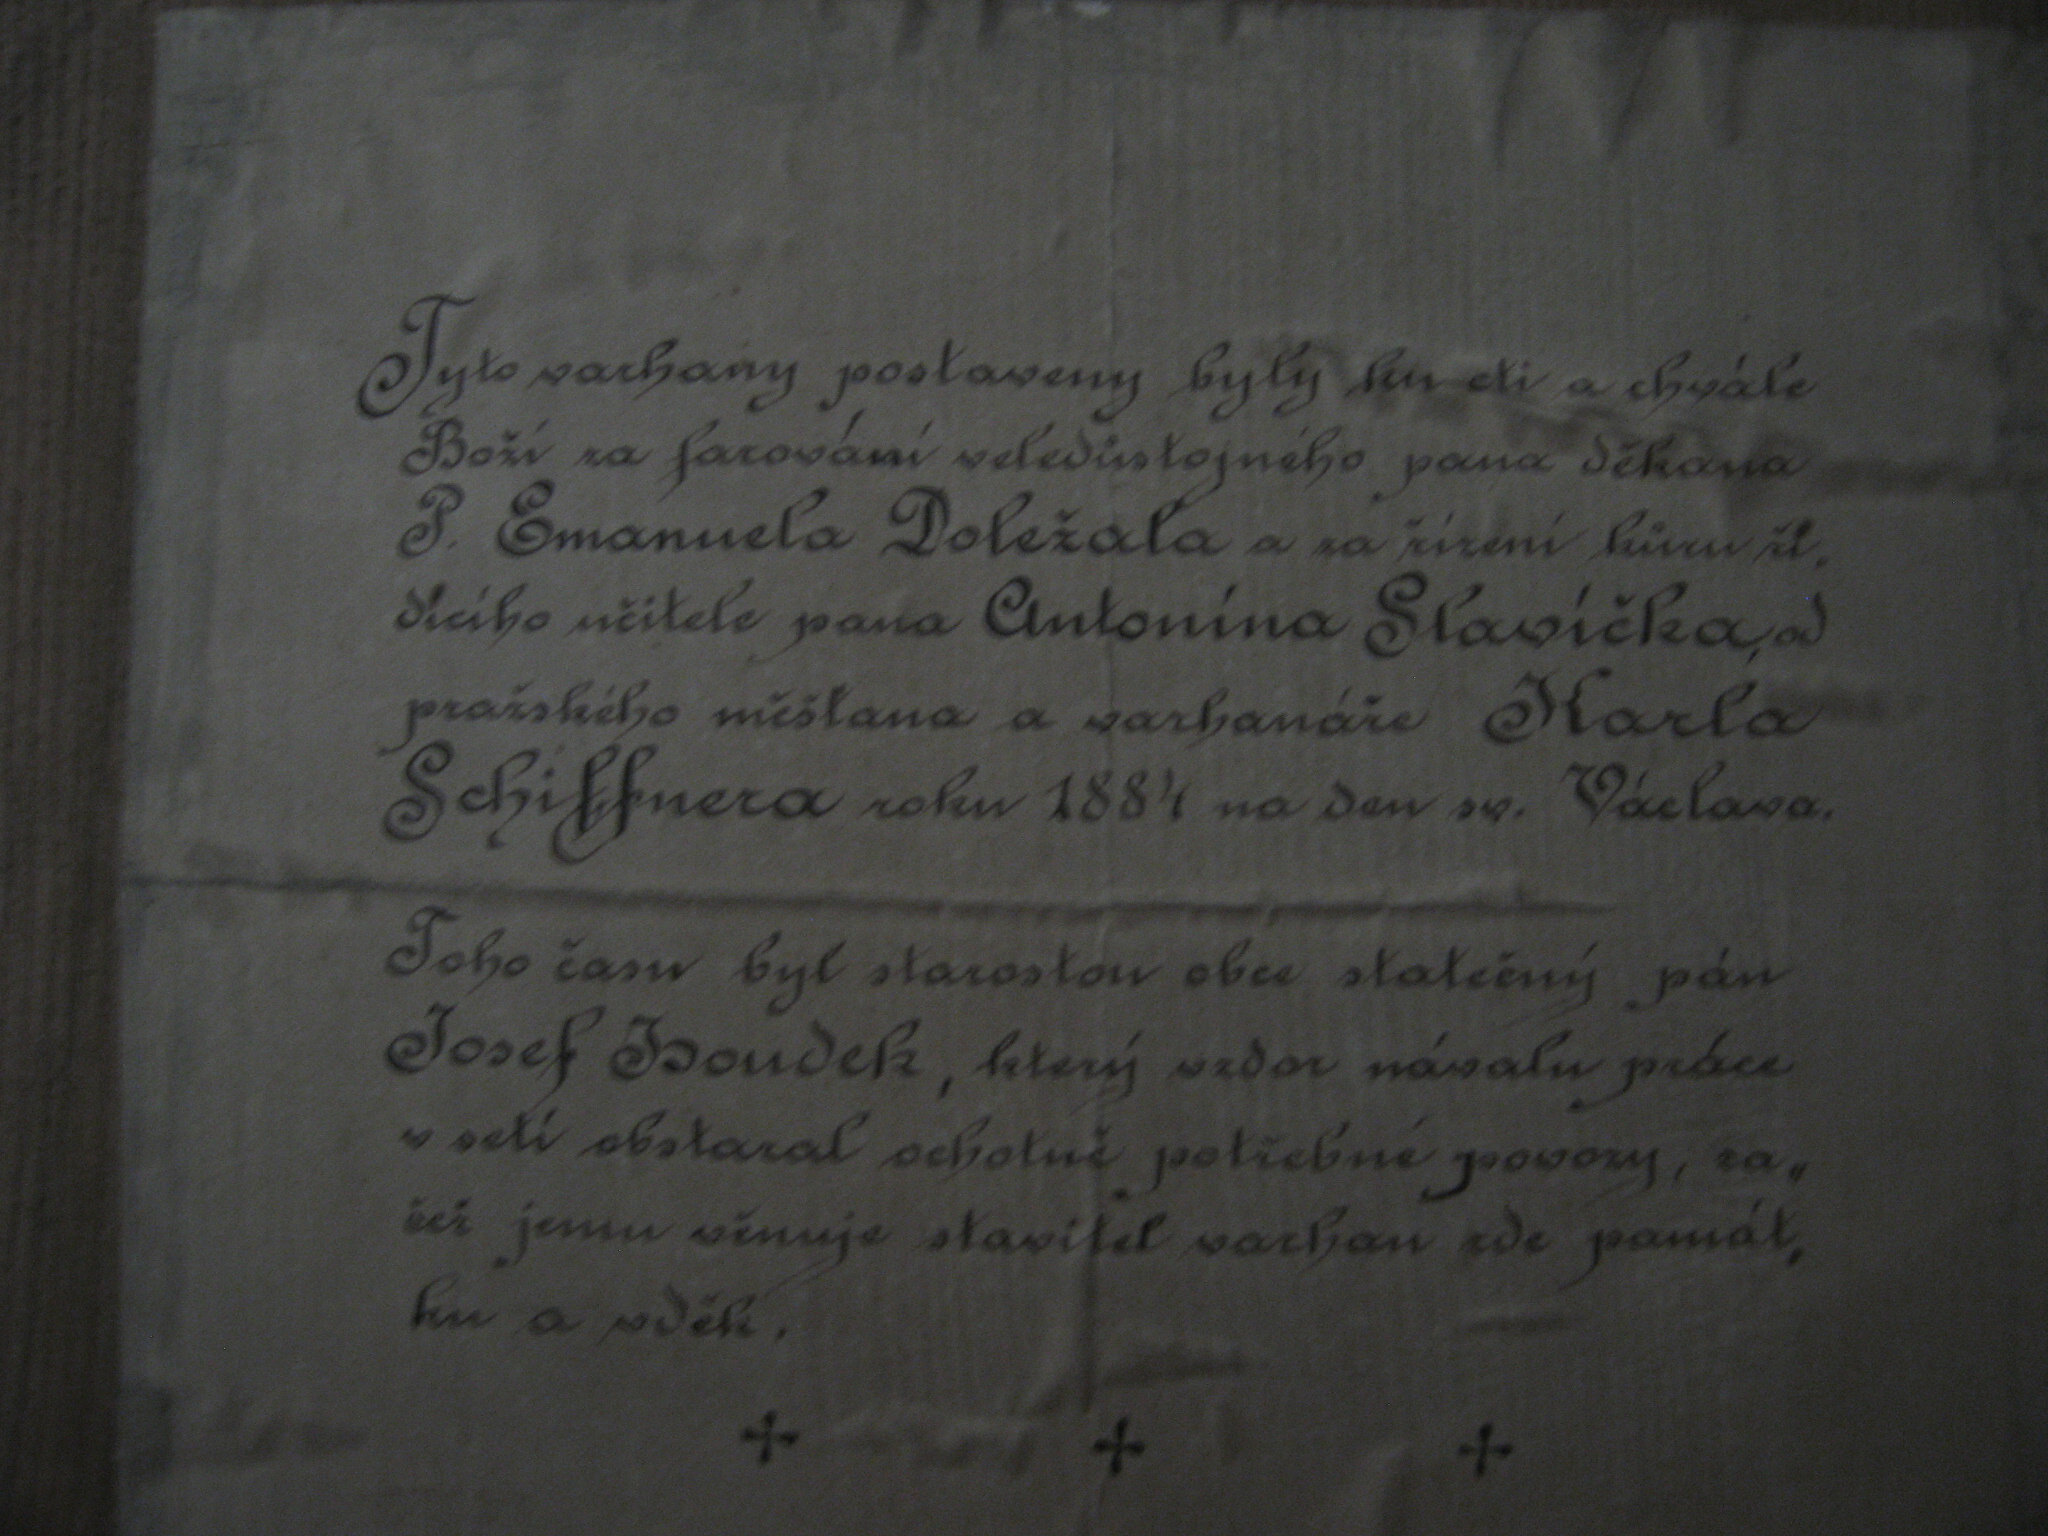 Tyto varhany postaveny byly ku cti a chvále
Boží za farování veledůstojného pana děkana
P. Emanuela Doležala a za řízení kůru ří„
dícího učitele pana Antonína Slavíčka, od
pražského měšťana a varhanáře Karla
Schiffnera roku 1884 na den sv. Václava.
Toho času byl starostou obce statečný pán
Josef Houdek, který vzdor návalu práce
v setí obstaral ochotně potřebné povozy, za„
čež jemu věnuje stavitel varhan zde památ„
ku a vděk.